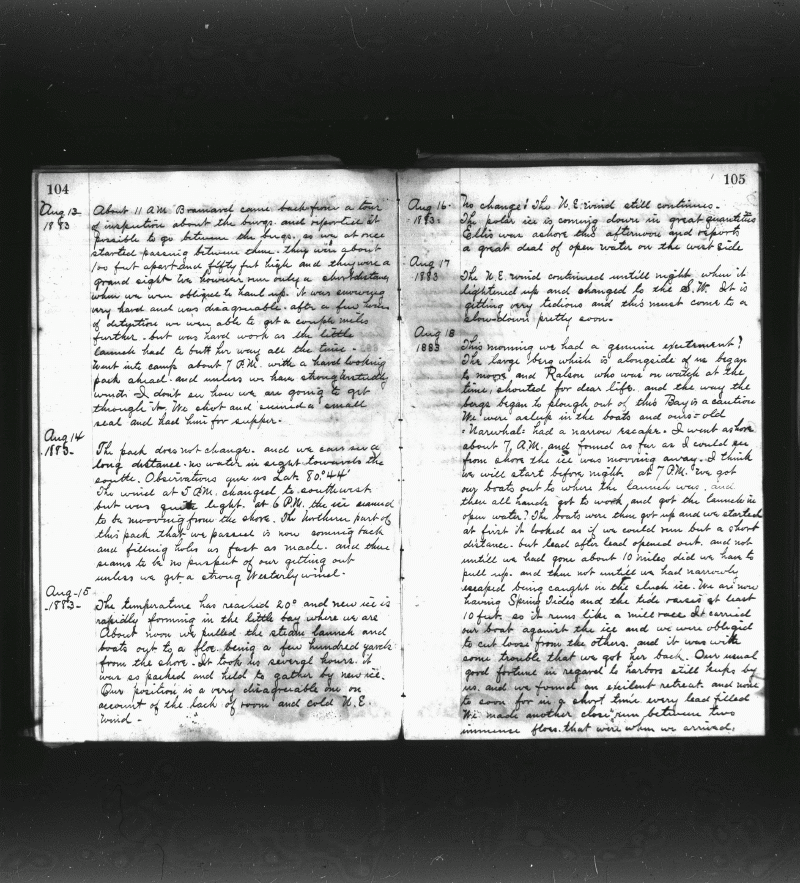 104
Aug 13
1883
About 11 A.M. Brainard came back from a tour
of inspection about the burgs. and reported it
possible to go between the burgs. so we at once
started passing between them. they were about
100 feet apart and fifty feet high and they were a
grand sight we however run only a short distance
when we were oblique to haul up. it was snowing
very hard and was disagreable. after a few hours
of detention we were able to get a couple miles
further. but was hard work as the little
launch had to butt her way all the time.
Went into camp about 7 A.M. with a hard looking
pack ahead. and unless we have strong westerly
winds I dont see how we are going to get
through it. We shot and secured a small
seal and had him for supper.
Aug 14
1883-
The pack does not change. and we can see a
long distance. no water in sight towards the
south. Observations give us Lat. 80°44'
The wind at 5 P.M. changed to southwest
but was quite light. at 6 P.M. the ice seemed
to be mooving from the shore. The Northern part of
this pack that we passed is now coming back
and filling holes as fast as made. and there
seams to be no prospect of our getting out
unless we get a strong Westerly wind.
Aug-15
-1883-
The temperature has reached 20° and new ice is
rapidly forming in the little bay where we are
About noon we pulled the steam launch and
boats out to a floe being a few hundred yards
from the shore. It took us several hours. it
was so packed and held to gather by new ice.
Our position is a very disagreeable one on
account of the lack of room and cold N.E.
Wind-
105
Aug 16-
1883-
No change! The N.E. wind still continues-
The polar ice is coming down in great quantities
Ellis was ashore this afternoon and reports
a great deal of open water on the west side
Aug 17
1883
The N.E. wind continued untill night when it
lightened up and changed to the S.W. It is
getting very tedious and this must come to a
slow down pretty soon-
Aug 18
1883
This morning we had a genuine excitement?
The large berg which is alongside of us began
to moove and Ralson who was on watch at the
time, shouted for dear life. and the way the
bergs began to plough out of this Bay is a caution
We were asleep in the boats and ours = old
=Narwhal= had a narrow escape. I went ashore
about 7, A.M. and found as far as I could see
from shore the ice was mooving away. I think
we will start before night. at 7 P.M. We got
our boats out to where the launch was. and
then all hands got to work and got the launch in
open water? The boats were then got up and we started
at first it looked as if we could run but a short
distance. but lead after lead opened out. and not
untill we had gone about 10 miles did we have to
pull up. and then not untill we had narrowly
escaped being caught in the slush ice. We are now
having Spring Tides and the tide raises at least
10 feet. so it runs like a mill race. It carried
our boat against the ice and we were obleged
to cut loose from the others. and it was with
some trouble that we got her back. Our usual
good fortune in regard to harbors still keeps by
us. and we found an exilent retreat. and none
to soon for in a short time every lead filled
We made another close run between two
immense floes. that were when we arrived.